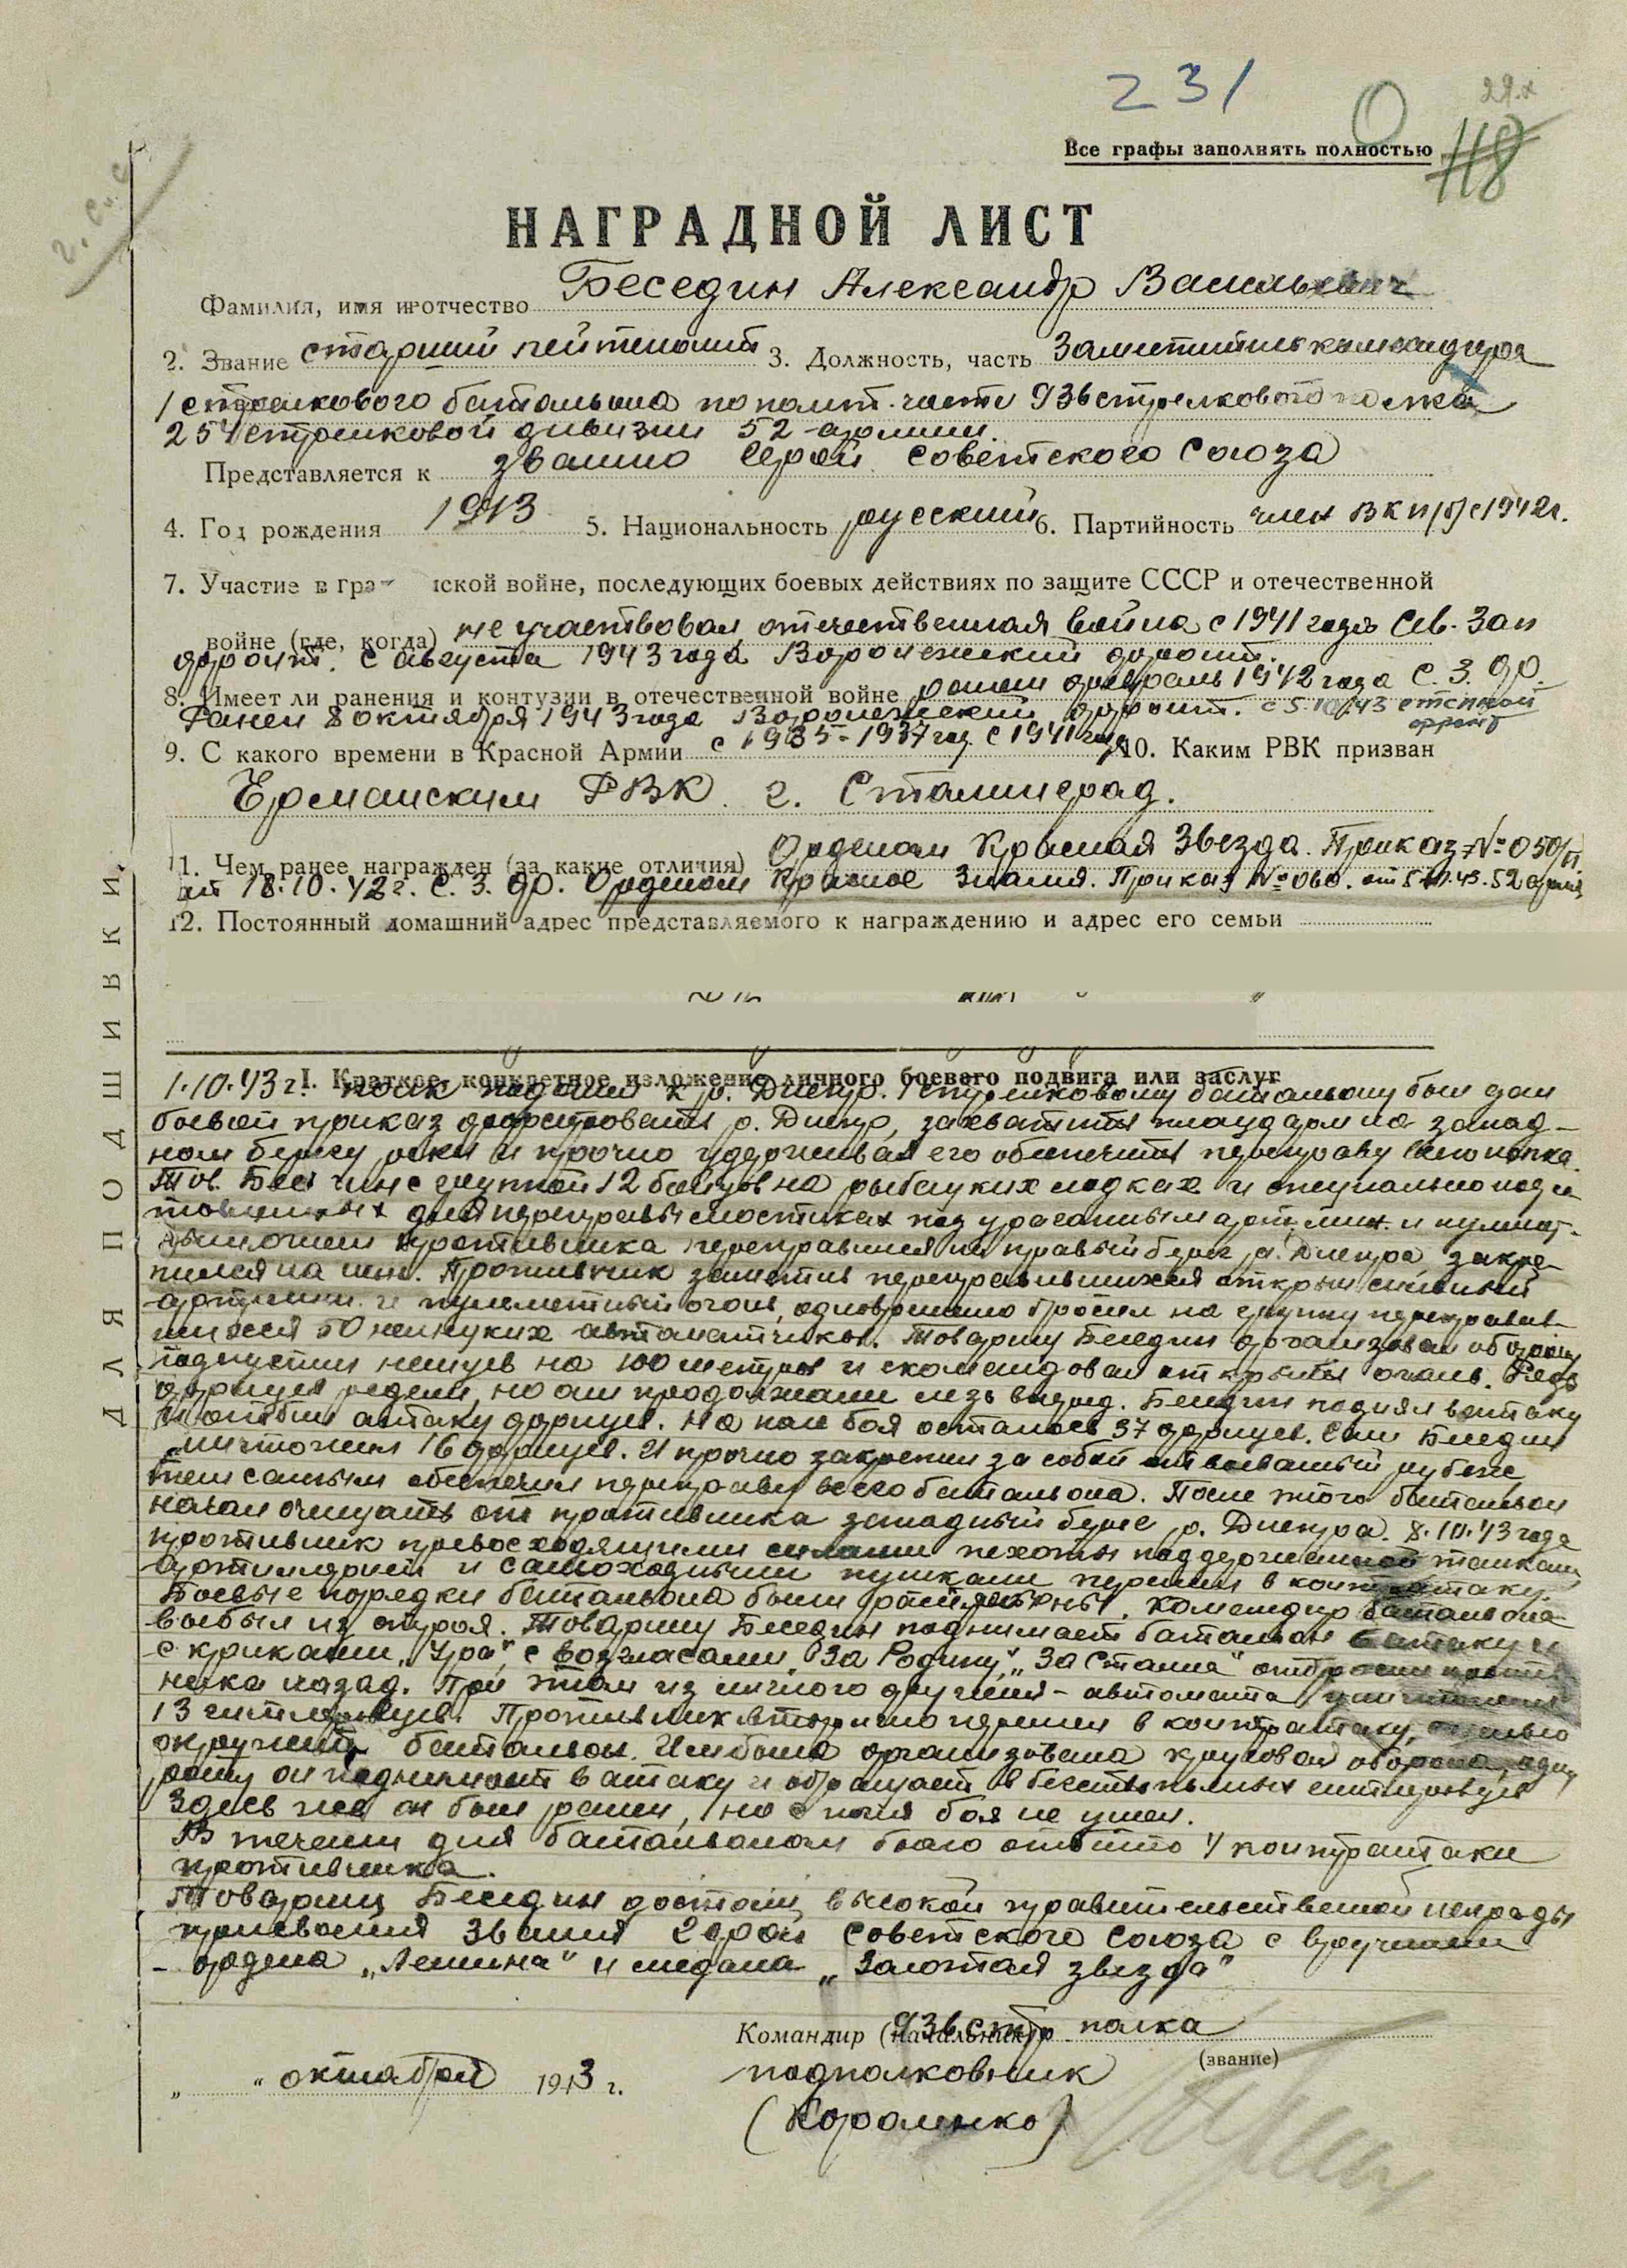 231
О
29.х
118
г. с. с
Все графы заполнять полностью
НАГРАДНОЙ ЛИСТ
Фамилия, имя и отчество Беседин Александр Васильевич
2. Звание старший лейтенант 3. Должность, часть Заместитель командира
1 стрелкового батальона по полит. части 936 стрелкового полка
254 стрелковой дивизии 52-армии.
Представляется к званию Герой Советского Союза
4. Год рождения 1913 5. Национальность русский 6. Партийность член ВКП(б) с 1942г.
7. Участие в гра ской войне, последующих боевых действиях по защите СССР и отечественной
войне (где, когда) не участвовал, отечественная война с 1941 года Сев. Зап
фронт. с августа 1943 года Воронежский фронт.
8. Имеет ли ранения и контузии в отечественной войне ранен февраль 1942 года С. З. Фр.
Ранен 8 октября 1943 года Воронежский фронт. с 5.10.43 степной
фронт
9. С какого времени в Красной Армии с 1935-1937 год с 1941 года 10. Каким РВК призван
Ерманским РВК г. Сталинград.
11. Чем ранее награжден (за какие отличия) Орденом Красная Звезда. Приказ № 050/п
от 18.10.42 г. С. З. Фр. Орденом Красное Знамя. Приказ № 060. от 43. 52 армия
12. Постоянный домашний адрес представляемого к награждению и адрес его семьи
ДЛЯ ПОДШИВКИ.
I. Краткое, конкретное изложение личного боевого подвига или заслуг
1.10.43 г. полк подошел к р. Днепр. 1 стрелковому батальону был дан
боевой приказ форсировать р. Днепр, захватить плацдарм на запад-
ном берегу реки и прочно удерживая его обеспечить переправу всего полка.
Тов. Беседин с группой 12 бойцов на рыбацких лодках и специально подго
товленных для переправы мостиках под ураганным арт. мин. и пулемет-
ным огнем противника переправился на правый берег р. Днепра, закре-
пился на нем. Противник заметив переправившихся открыл сильный
артмин. и пулеметный огонь, одновременно бросил на группу переправив-
шихся 50 немецких автоматчиков. Товарищ Беседин организовал оборону
подпустил немцев на 100 метров и скомандовал открыть огонь. Ряды
фрицев редели, но они продолжали лезь вперед. Беседин поднял в атаку
и отбил атаку фрицев. На поле боя осталось 37 фрицев. Сам Беседин
уничтожил 16 фрицев. И прочно закрепил за собой отвоеваный рубеж,
тем самым обеспечил переправу всего батальона. После этого батальон
начал очищать от противника западный берег р. Днепра. 8.10.43 года
противник превосходящими силами пехоты поддержанной танками
артиллерией и самоходными пушками перешел в контратаку.
Боевые порядки батальона были расстроены. Командир батальона
выбыл из строя. Товарищ Беседин поднимает батальон в атаку и
с криками „Ура", с возгласами „За Родину", „За Сталина" отбросил против
ника назад. При этом из личного оружия - автомата уничтожил
13 гитлеровцев. Противник вторично перешел в контратаку, с целью
окружить батальон. Им была организована круговая оборона, одну
роту он поднимает в атаку и обращает в бегство пьяных гитлеровцев
Здесь же он был ранен, но с поля боя не ушел.
В течении дня батальоном было отбито 4 контратаки
противника.
Товарищ Беседин достоин высокой правительственной награды
присвоения звания Герой Советского Союза с вручением
- ордена „Ленина" и медали „Золотая звезда"
Командир (начальник) 936 стр полка
(звание)
„ “ октября 1943 г. подполковник
(Короленко)